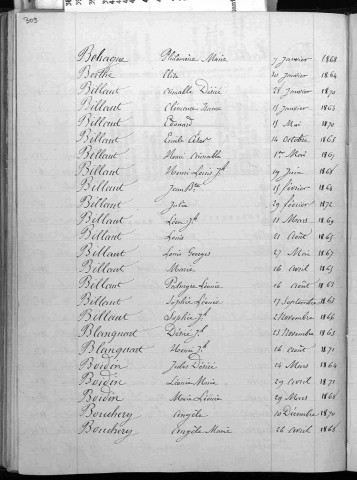 303
Behague Philomène Marie 7 Janvier 1868
Berthe Elise 20 Janvier 1864
Billaut Aimable Désiré 28 Janvier 1870
Billaut Clémence 15 Janvier 1863
Billaut Edouard 15 Mai 1870
Billaut Emile César 14 Octobre 1865
Billaut Henri Aimable 1er Mai 1867
Billaut Henri Louis Jh 29 Juin 1868
Billaut Jean Bte 15 février
Billaut Julia 29 février 1872
Billaut Léon Jh 11 Mars 1869
Billaut Louis 21 Août 1865
Billaut Louis Georges 27 Mai 1867
Billaut Marie 16 avril 1865
Billaut Palmyre Léonie 16 août
Billaut Sophie Léonie 17 Septembre 1863
Billaut Sophie Jh Novembre 1866
Blanquart Désiré Jh 23 Novembre 1863
Blanquart Henri Jh 16 août 1871
Boidin Jules Désiré 24 Mars 1864
Boidin Léonie Marie 29 avril 1871
Boidin Marie Léonie 29 Mars 1868
Bouchery Angèle 10 Décembre 1870
Bouchery Angèle Marie 26 avril 1868